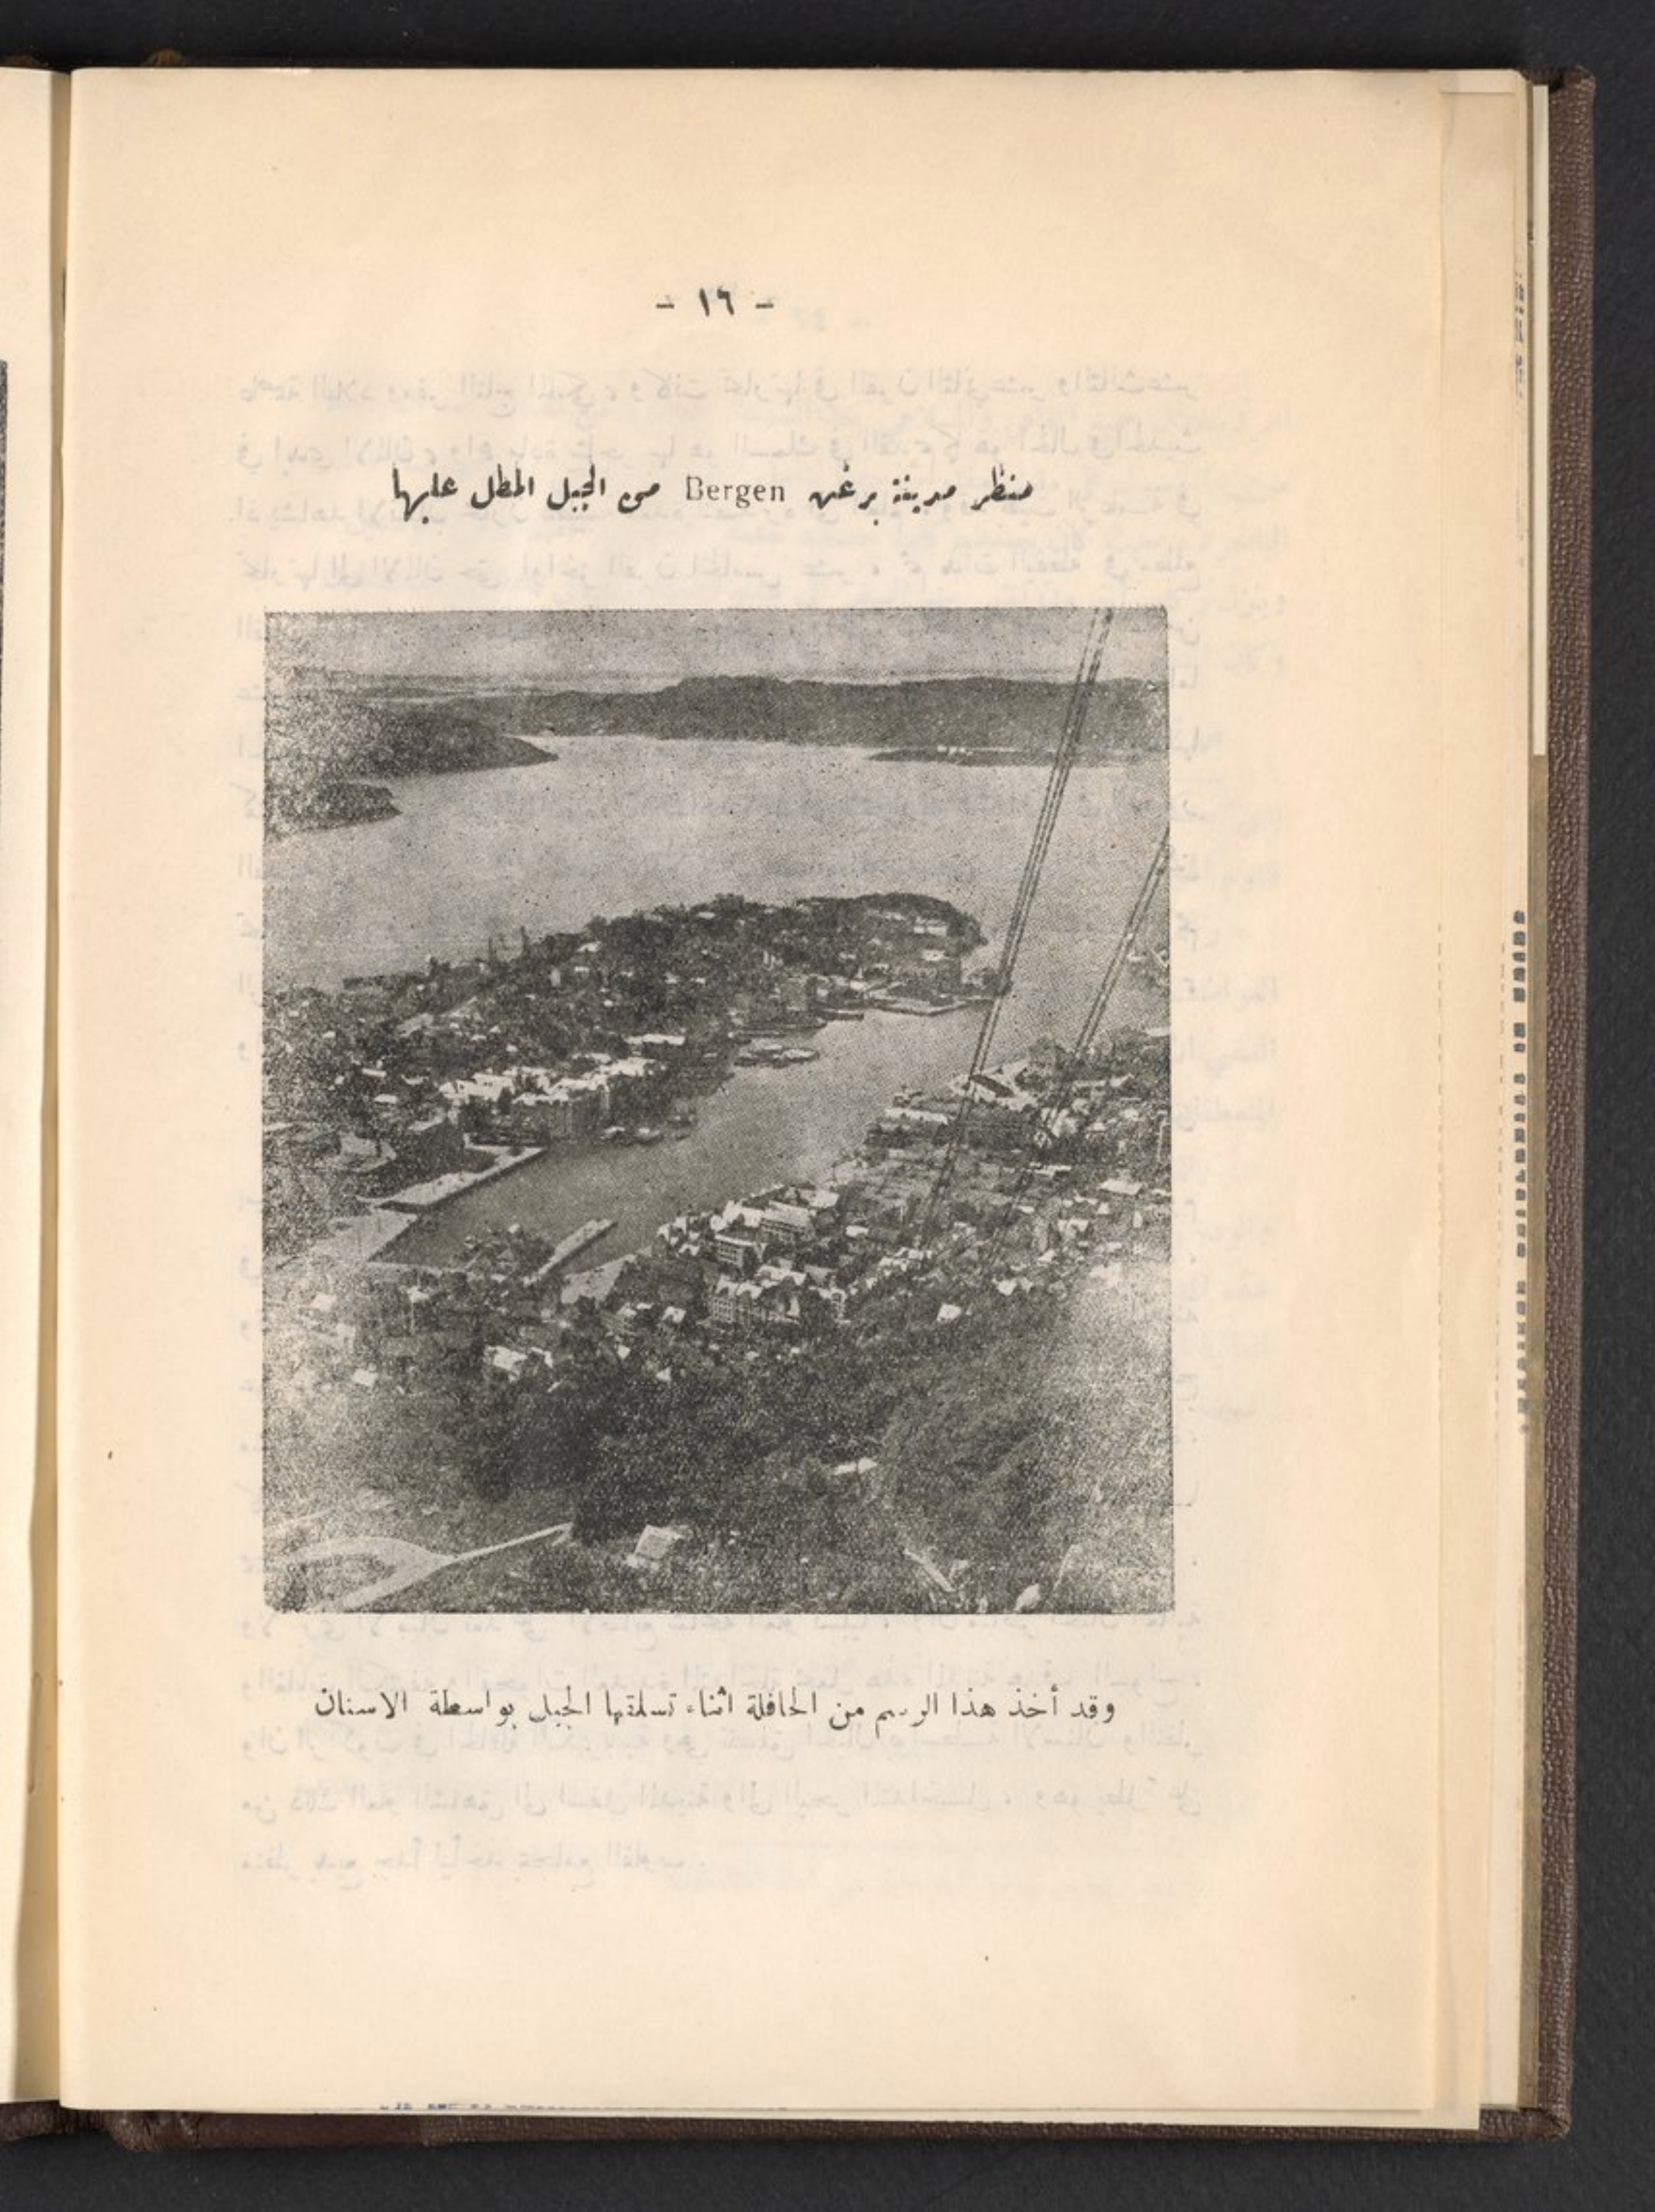 - ١٦ -
منظر مدينة برغن Bergen من الجبل المطل عليها
وقد أخذ هذا الرسم من الحافلة اثناء تسلقها الجبل بواسطة الاسنان